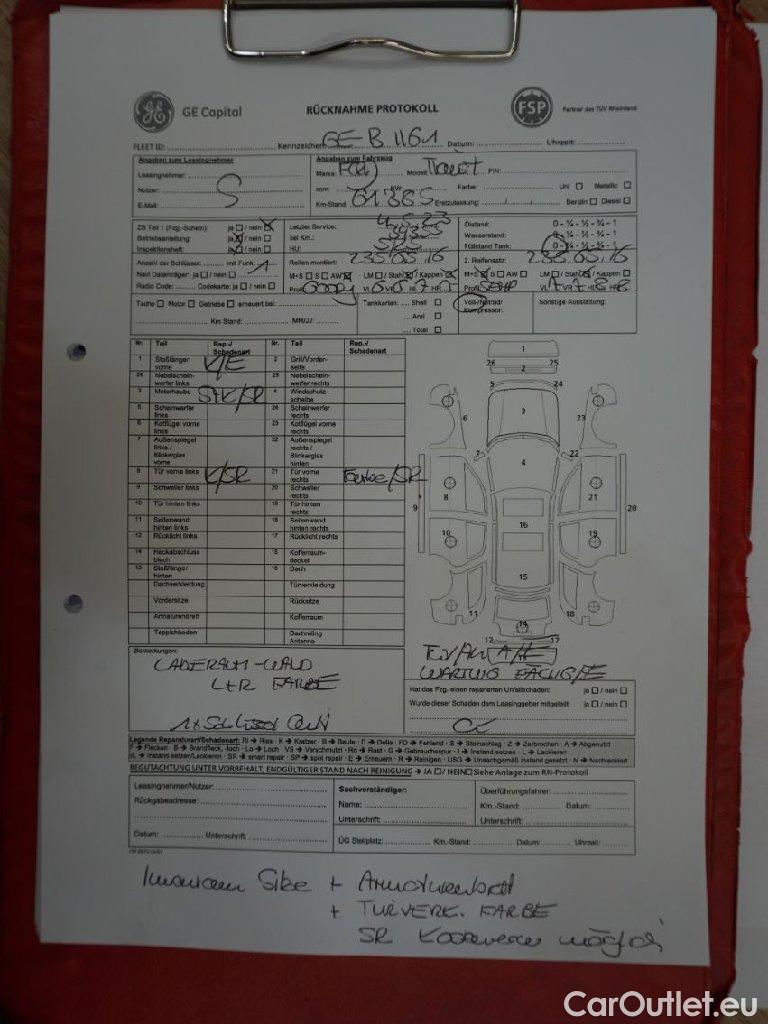 GE Capital
RÜCKNAHME PROTOKOLL
FSP
Partner des TÜV Rheinland
FLEET ID: Kennzeichen: GE-B 1161 Datum: Uhrzeit:
Angaben zum Leasingnehmer
Angaben zum Fahrzeug
Leasingnehmer:
Marke: Modell: FIN:
Nutzer:
ccm: KW: Farbe: Uni Metallic
E-Mail:
Km-Stand: 61385 Erstzulassung: Benzin Diesel
ZB Teil 1 (Fzg.-Schein): ja / nein
Letzter Service:
Ölstand: 0 - ¼ - ½ - ¾ - 1
Betriebsanleitung: ja / nein
bei Km.:
Wasserstand: 0 - ¼ - ½ - ¾ - 1
Inspektionsheft: ja / nein
HU:
Füllstand Tank: 0 - ¼ - ½ - ¾ - 1
Anzahl der Schlüssel: mit Funk 1
Reifen montiert: 235 65 16
2. Reifensatz: 235 65 16
Navi Datenträger: ja / nein
M+S S AW UM / Stahl / Kappen
M+S S AW UM / Stahl / Kappen
Radio Code: Codekarte: ja / nein
Tacho Motor Getriebe erneuert bei:
Tankkarten: Shell
Voll-/Notrad/
Kompressor:
Sonstige Ausstattung:
Km Stand: MM/JJ:
Aral
Total
Nr. Teil Rep./ Schadenart Nr. Teil Rep./ Schadenart
1 Stoßfänger vorne K/E 2 Grill/Vorder-seite
26 Nebelschein-werfer links 25 Nebelschein-werfer rechts
3 Motorhaube STK/SR 4 Windschutz-scheibe
5 Scheinwerfer links 24 Scheinwerfer rechts
6 Kotflügel vorne links 23 Kotflügel vorne rechts
7 Außenspiegel links / Blinkerglas vorne 22 Außenspiegel rechts / Blinkerglas hinten
8 Tür vorne links K/SR 21 Tür vorne rechts Farbe/SR
9 Schweller links 20 Schweller rechts
10 Tür hinten links 19 Tür hinten rechts
11 Seitenwand hinten links 18 Seitenwand hinten rechts
12 Rücklicht links 17 Rücklicht rechts
14 Heckabschluss blech 15 Kofferraum-deckel
13 Stoßfänger hinten 16 Dach
Dachverkleidung Türverkleidung
Vordersitze Rücksitze
Armaturenbrett Kofferraum
Teppichboden Dachreling Antenne
1
26 25
2
5 24
3
6 23
7 22
4
8 21
9 20
16
10 19
15
11 18
14
12 17
13
Bemerkungen:
LADERAUM-WAND
FARBE
TÜV/AU A/E
WARTUNG FÄLLIG/E
Hat das Fzg. einen reparierten Unfallschaden: ja / nein
Wurde dieser Schaden dem Leasinggeber mitgeteilt ja / nein
Legende Reparaturart/Schadenart: RI → Riss · K → Kratzer · B → Beule · D → Delle · FD → Fehlend · S → Steinschlag · Z → Zerbrochen · A → Abgenutzt
F → Flecken · B → Brandfleck, -loch · Lo → Loch · VS → Verschmutzt · Ro → Rost · G → Gebrauchsspur · I → Instand setzen · L → Lackieren
IL → Instand setzen/Lackieren · SR → smart repair · SP → spot repair · E → Erneuern · R → Reinigen · USG → Unsachgemäß instand gesetzt · N → Nachlackiert
BEGUTACHTUNG UNTER VORBEHALT, ENDGÜLTIGER STAND NACH REINIGUNG → JA / NEIN Siehe Anlage zum RN-Protokoll
Leasingnehmer/Nutzer:
Sachverständiger:
Überführungsfahrer:
Rückgabeadresse:
Name:
Km.-Stand: Datum:
Unterschrift:
Unterschrift:
Datum: Unterschrift:
ÜG Stellplatz: Km.-Stand: Datum: Uhrzeit:
+ Armaturenbrett
+ TÜRVERK. FARBE
SR möglich
CarOutlet.eu